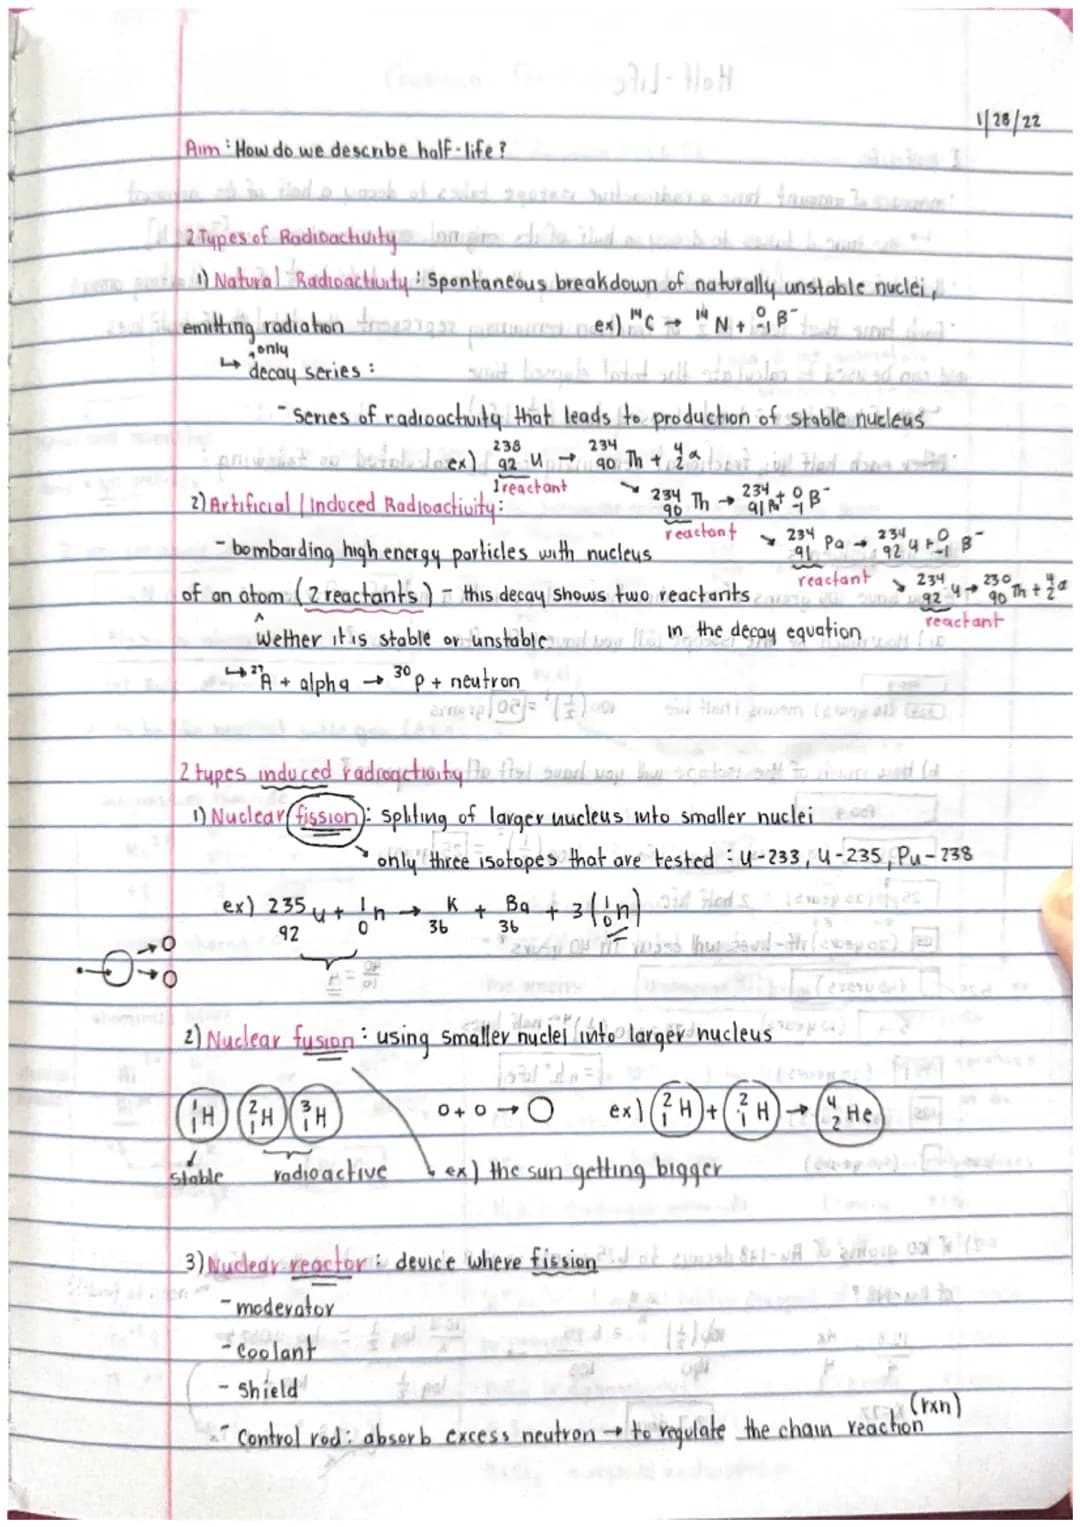 1/28/22
Aim: How do we describe half-life?
2 Types of Radioactivity
1) Natural Radioactivity: Spontaneous breakdown of naturally unstable nuclei,
emitting radiation ex) ¹⁴C → ¹⁴N + ⁰₋₁β⁻
↳ only decay series:
- Series of radioactivity that leads to production of stable nucleus
ex) ²³⁸₉₂U → ²³⁴₉₀Th + ⁴₂α
1 reactant
↘ ²³⁴₉₀Th → ²³⁴₉₁Pa + ⁰₋₁β⁻
2) Artificial / Induced Radioactivity:
reactant ↘ ²³⁴₉₁Pa → ²³⁴₉₂U + ⁰₋₁β⁻
- bombarding high energy particles with nucleus
reactant ↘ ²³⁴₉₂U → ²³⁰₉₀Th + ⁴₂α
of an atom (2 reactants) - this decay shows two reactants
reactant
^ Wether it is stable or unstable in the decay equation
↳ ²⁷A + alpha → ³⁰P + neutron
2 types induced radioactivity
1) Nuclear fission: spliting of larger nucleus into smaller nuclei
↘ only three isotopes that are tested: U-233, U-235, Pu-238
ex) ²³⁵₉₂U + ¹₀n → ₃₆K + ₃₆Ba + 3(¹₀n)
2) Nuclear fusion: using smaller nuclei into larger nucleus
¹₁H ²₁H ³₁H o + o → O ex) ²₁H + ²₁H → ⁴₂He
stable radioactive ex) the sun getting bigger
3) Nuclear reactor: device where fission
- moderator
- Coolant
- Shield
- Control rod: absorb excess neutron → to regulate the chain reaction (rxn)